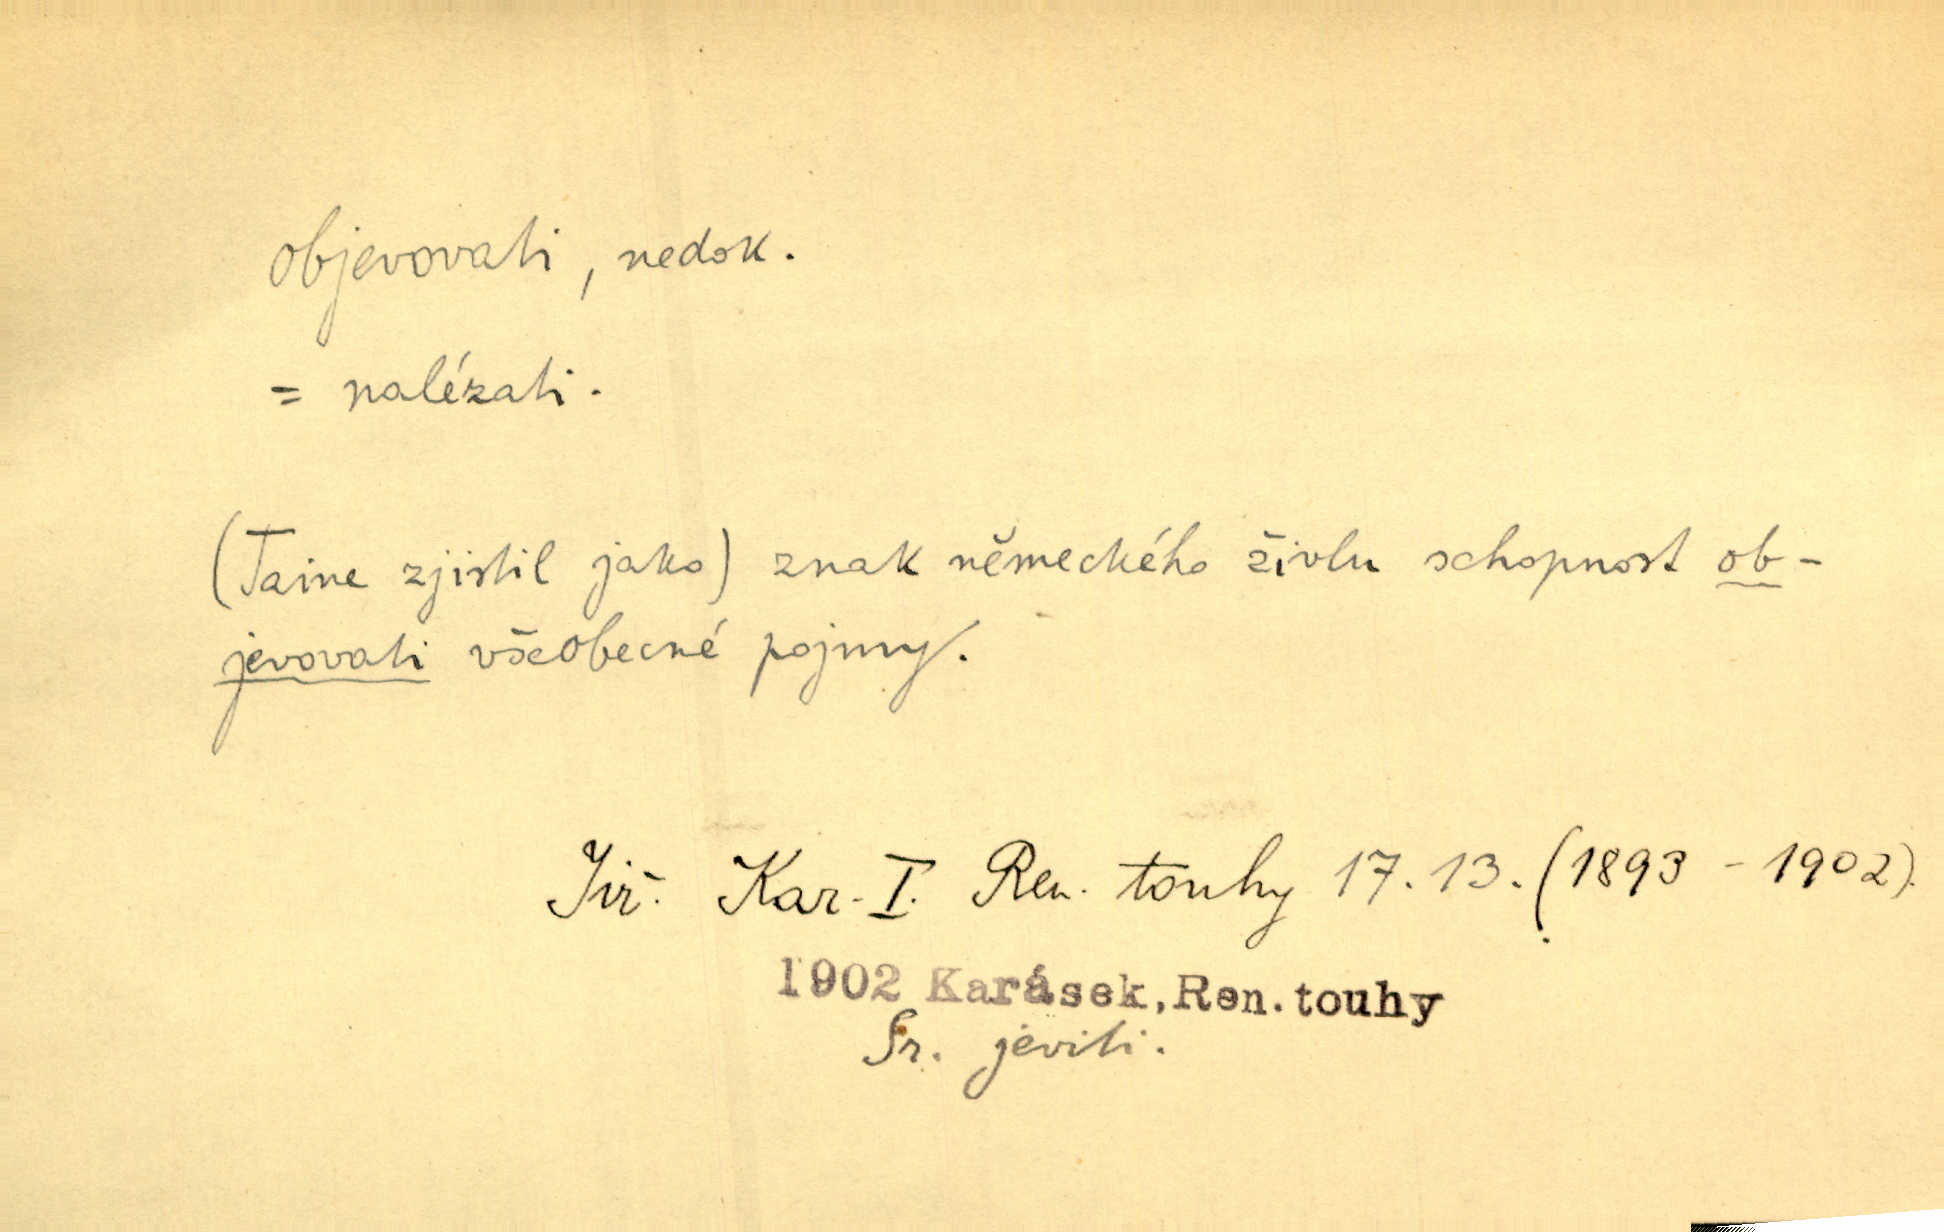 objevovati, nedok.
= nalézati.
(Taine zjistil jako) znak německého živlu schopnost ob-
jevovati všeobecné pojmy.
Jiř. Kar. I. Ren. touhy 17. 13. (1893 - 1902).
1902 Karásek, Ren. touhy
Sr. jeviti.